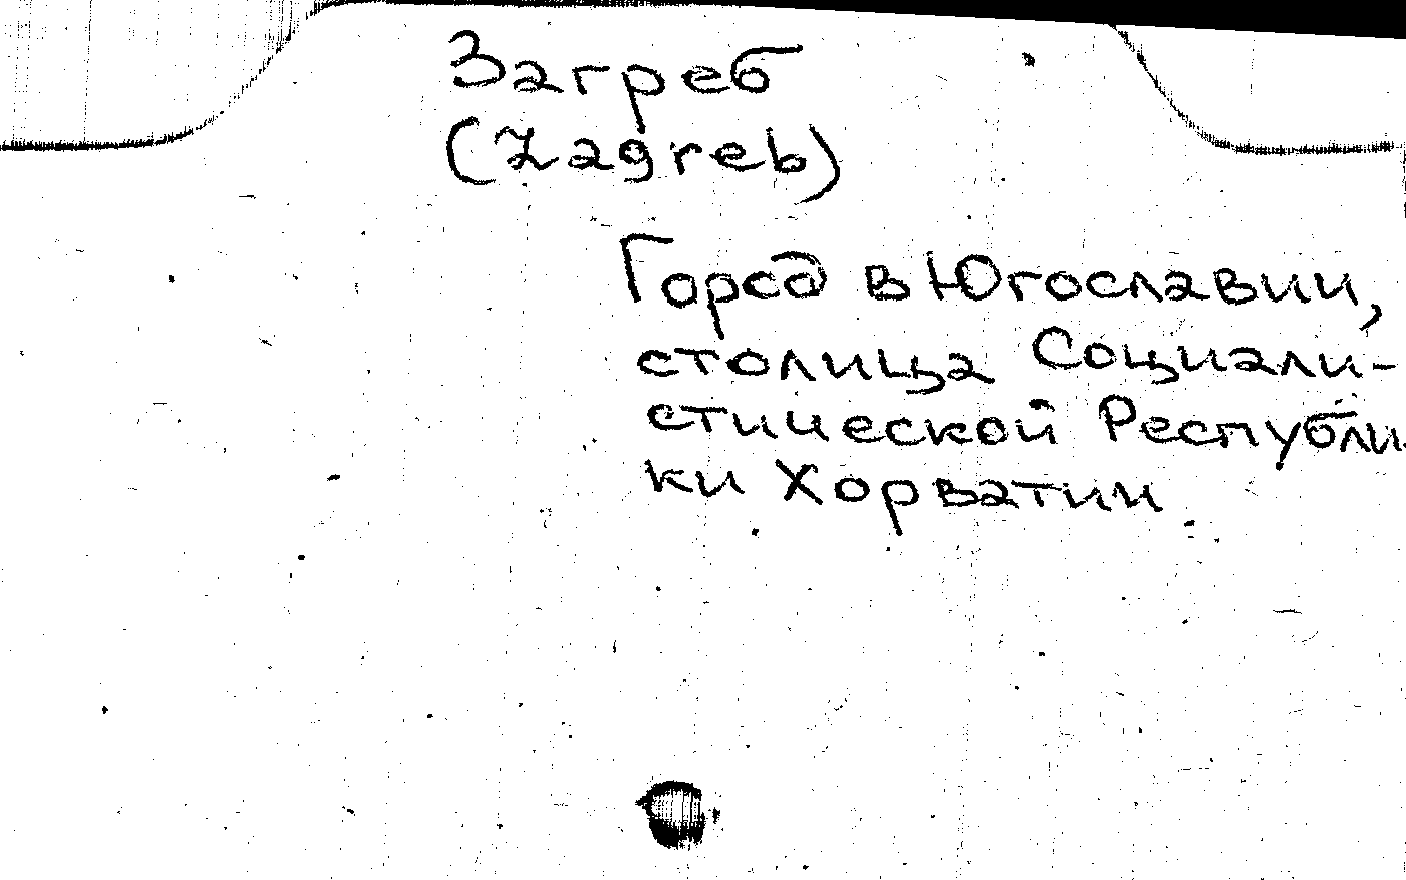 Загреб
(Zagreb)
Город в Югославии,
столица Социали-
стической Республи-
ки Хорватии